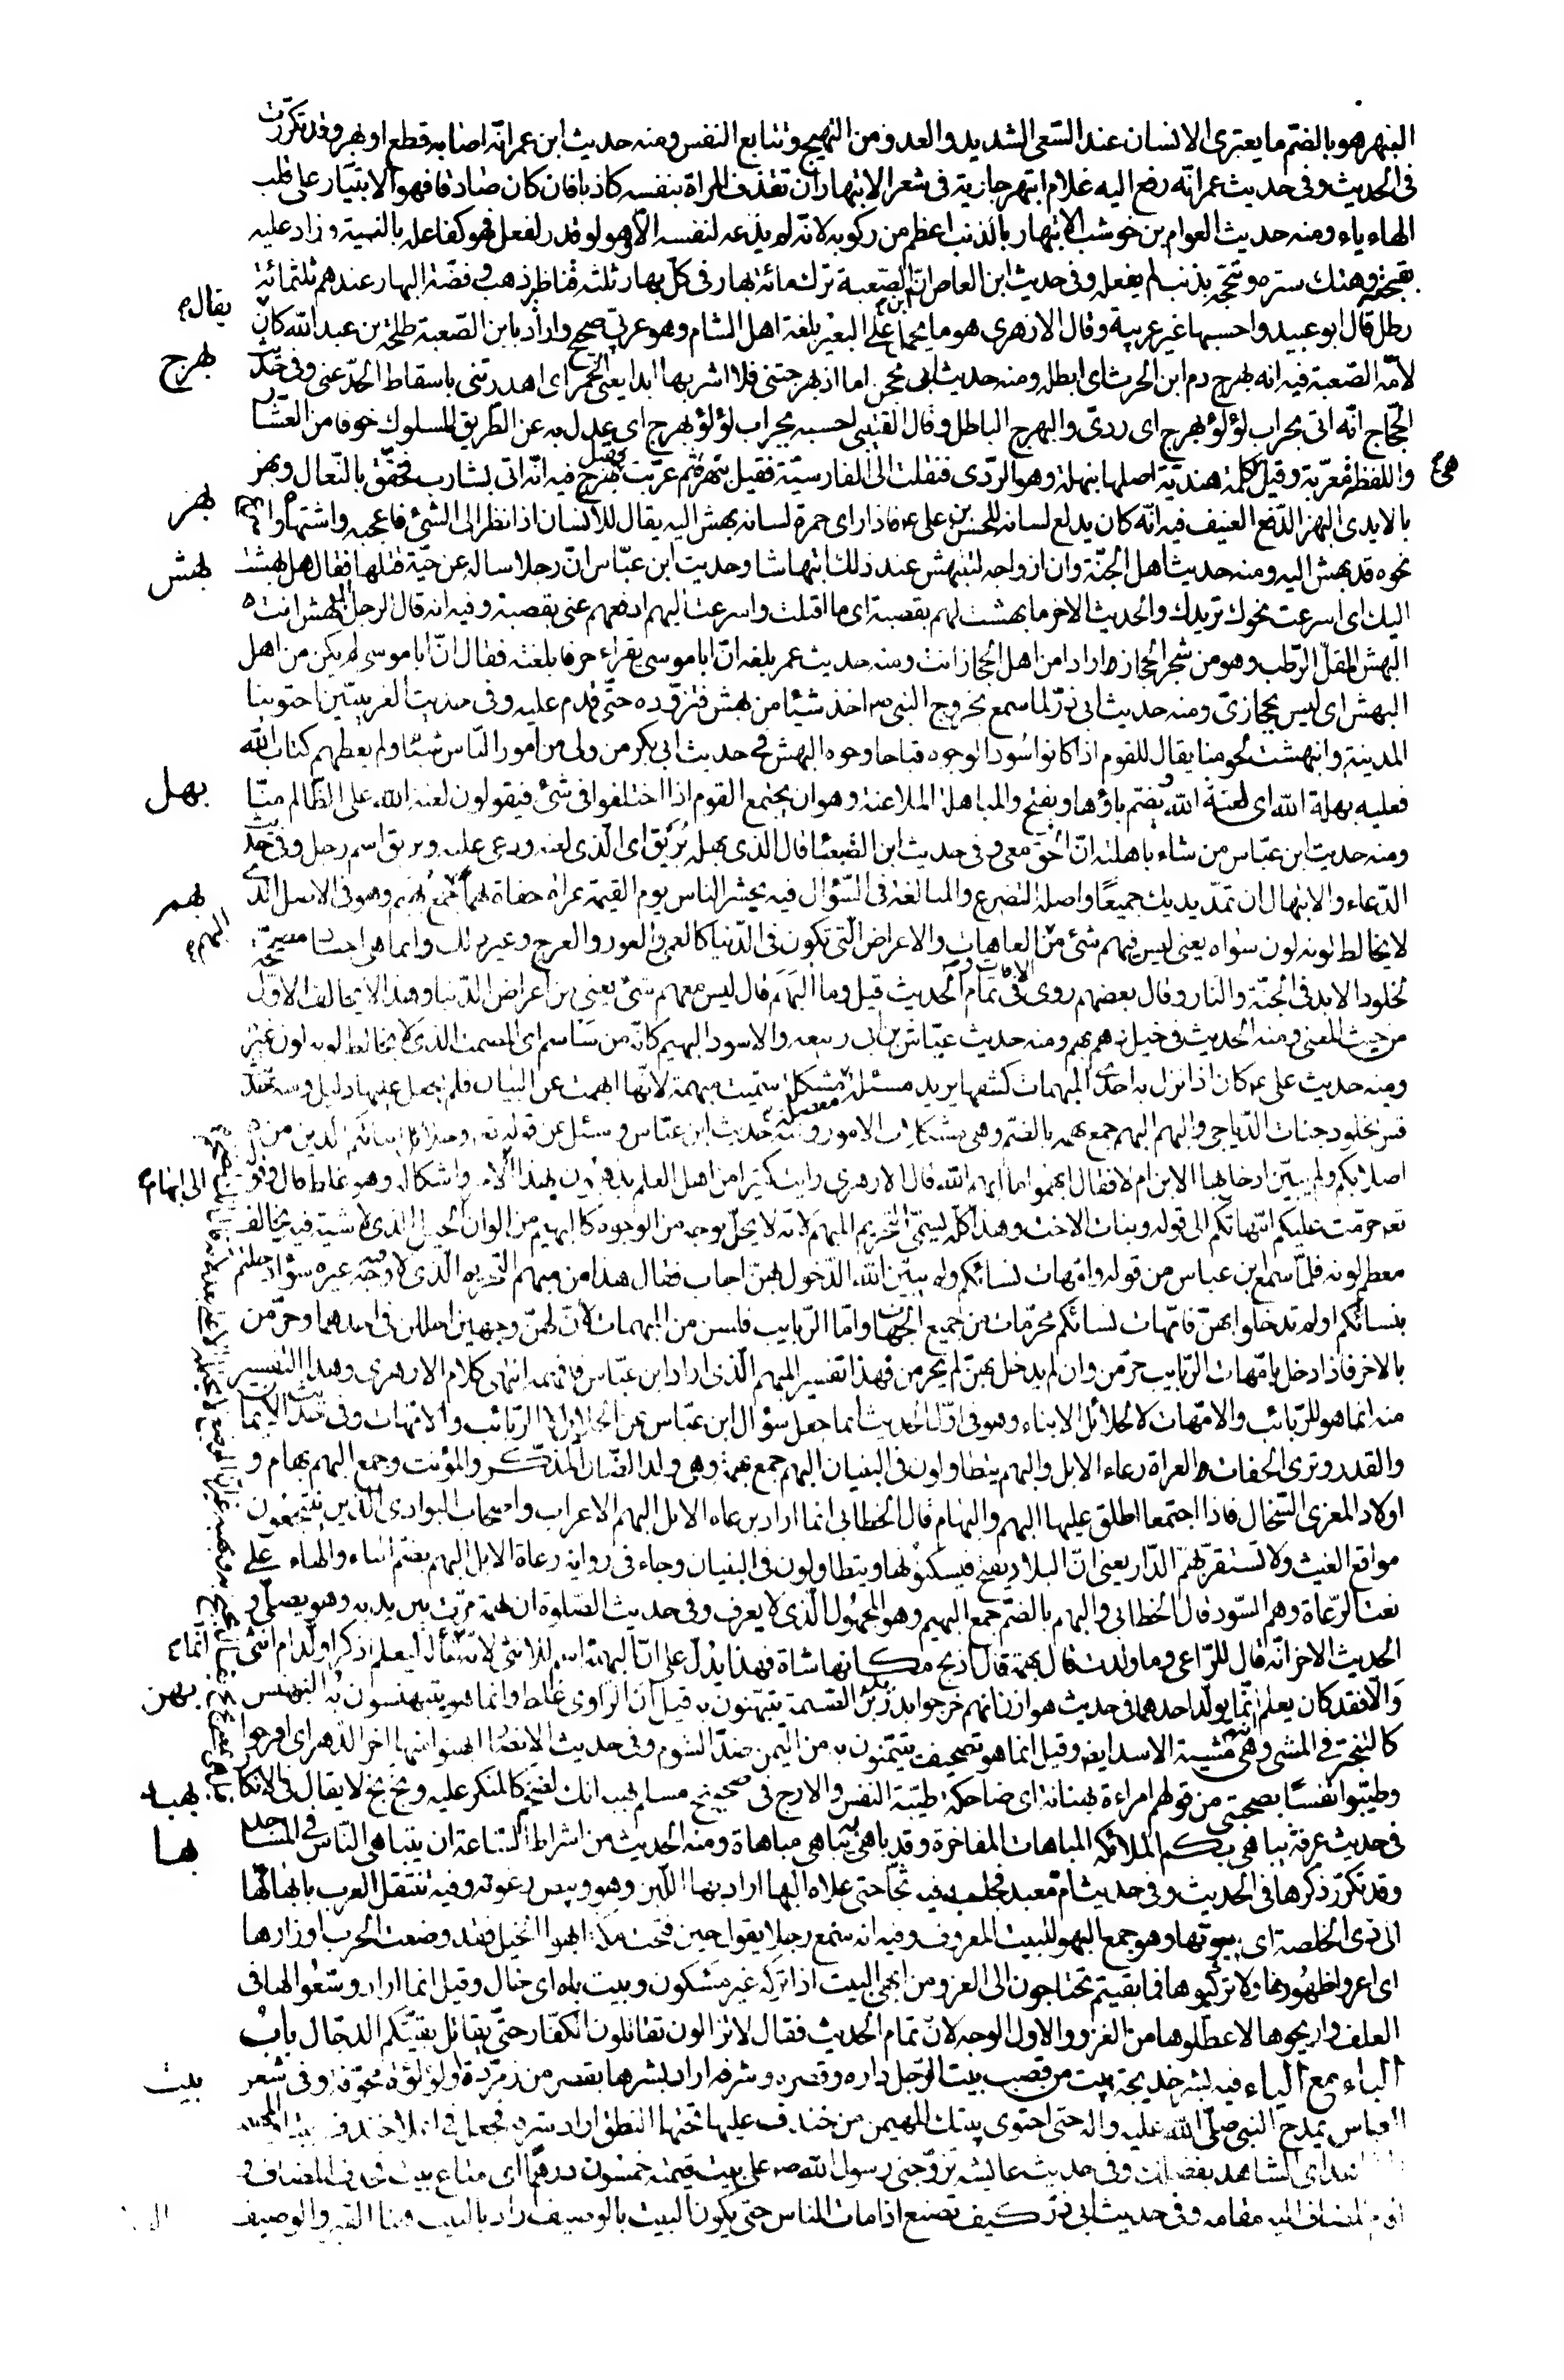 البهر هو بالضم ما يعترى الانسان عند السعى الشديد والعدو من التهيج وتتابع النفس ومنه حديث ابن عمر انه اصابه قطع او بهر وقد تكررت
فى الحديث وفى حديث عمر انه رفع اليه غلام ابتهر جارية فى شعر الابتهار ان تقذف المراة بنفسه كاذبا فان كان صادقا فهو الابتيار على قلب
الهاء ياء ومنه حديث العوام بن حوشب الابتهار بالذنب اعظم من ركوبه لانه لم يدعه لنفسه الا وهو لو قدر لفعل فهو كفاعله بالنية وزاد عليه
بقبحه وهتك ستره وتبجحه بذنب لم يفعله وفى حديث ابن العاص ان ابن الصعبة ترك مائة بهار فى كل بهار ثلثه قناطر ذهب وفضة البهار عندهم ثلثمائة
رطل قال ابو عبيد واحسبها غير عربية وقال الازهرى هو ما يحمل على البعير بلغة اهل الشام وهو عربى صحيح واراد بابن الصعبة طلحة بن عبد الله كان
يقال
لامه الصعبة فيه انه بهرج دم ابن الحرث اى ابطله ومنه حديث ابى محجن اما اذ بهرجتنى فلا اشربها ابدا يعنى الخمر اى اهدرتنى باسقاط الحد عنى وفى حديث
بهرج
الحجاج انه اتى بجراب لؤلؤ بهرج اى ردى والبهرج الباطل وقال القتيبى احسبه بجراب لؤلؤ بهرج اى عدل به عن الطريق المسلوك خوفا من العشار
واللفظة معربة وقيل كلمة هندية اصلها نبهله وهو الردى فنقلت الى الفارسية فقيل نبهره ثم عربت وقيل بهرج فيه انه اتى بشارب فخفق بالنعال وبهز
بهز
بالايدى البهز الدفع العنيف فيه انه كان يدلع لسانه للحسن بن على ع فاذا راى حمرة لسانه بهش اليه يقال للانسان اذا نظر الى الشئ فاعجبه واشتهاه
نحوه قد بهش اليه ومنه حديث اهل الجنة وان ازواجه لتبتهش عند ذلك ابتهاشا وحديث ابن عباس ان رجلا ساله عن حية قتلها فقال هل بهشت
بهش
اليك اى اسرعت نحوك تريدك والحديث الاخر ما بهشت لهم بقصبة اى ما اقبلت واسرعت اليهم ادفعهم عنى بقصبة وفيه انه قال الرجل امن اهل البهش انت
البهش المقل الرطب وهو من شجر الحجاز اراد امن اهل الحجاز انت ومنه حديث عمر بلغه ان ابا موسى يقراء حرفا بلغته فقال ان ابا موسى لم يكن من اهل
البهش اى ليس بحجازى ومنه حديث ابى ذر لما سمع بخروج النبى ص اخذ شيئا من بهش فتزوده حتى قدم عليه وفى حديث العرنيين اجتوينا
المدينة وانبهشت لحومنا يقال للقوم اذا كانوا سود الوجوه قباحا وجوه البهش فى حديث ابى بكر من ولى من امور الناس شيئا ولم يعطهم كتاب الله
فعليه بهلة الله اى لعنة الله وتضم باؤها وتفتح والمباهلة الملاعنة وهو ان يجتمع القوم اذا اختلفوا فى شئ فيقولون لعنة الله على الظالم منا
بهل
ومنه حديث ابن عباس من شاء باهلته ان الحق معى وفى حديث ابن الضبعا قال الذى بهله بريق اى الذى لعنه ودعى عليه وبريق اسم رجل وفى حديث
الدعاء والابتهال ان تمد يديك جميعا واصله التضرع والمبالغة فى السؤال فيه يحشر الناس يوم القيمة عراة حفاة بهما جمع بهيم وهو فى الاصل الذى
بهم
لا يخالط لونه لون سواه يعنى ليس فيهم شئ من العاهات والاعراض التى تكون فى الدنيا كالعمى والعور والعرج وغير ذلك وانما هى اجساد مصححة
لخلود الابد فى الجنة والنار وقال بعضهم روى فى تمام الحديث قيل وما البهم قال ليس معهم شئ يعنى من اعراض الدنيا وهذا لا يخالف الاول
من حيث المعنى ومنه الحديث فى خيل دهم بهم ومنه حديث عياش بن ابى ربيعه والاسود البهيم كانه من ساسم اى المصمت الذى لا يخالط لونه لون غيره
ومنه حديث على ع كان اذا نزل به احدى المبهمات كشفها يريد مسئلة معضلة مشكلة سميت مبهمة لانها ابهمت عن البيان فلم يجعل عليها دليل ومنه حديث
قس تجلو دجنات الدياجى والبهم البهم جمع بهمة بالضم وهى مشكلات الامور ومنه حديث ابن عباس وسئل عن قوله تع وحلائل ابنائكم الذين من
اصلابكم ولم يبين ادخل بها الابن ام لا فقال ابهموا ما ابهم الله قال الازهرى رايت كثيرا من اهل العلم يذهبون بهذا الى ابهام الامر واشكاله وهو غلط قال وقوله
تعه حرمت عليكم امهاتكم الى قوله وبنات الاخت وهذا كله يسمى التحريم المبهم لانه لا يحل بوجه من الوجوه كالبهيم من الوان الخيل الذى لا شية فيه تخالف
معظم لونه فلما سئل ابن عباس من قوله وامهات نسائكم ولم يبين الله الدخول بهن اجاب فقال هذا من مبهم التحريم الذى لا وجه فيه غيره سواء دخلتم
بنسائكم اولم تدخلوا بهن فامهات نسائكم محرمات من جميع الجهات واما الربايب فلسن من المبهمات لان لهن وجهين احللن فى احدهما وحرمن
بالاخر فاذا دخل بامهات الربايب حرمن وان لم يدخل بهن لم يحرمن فهذا تفسير المبهم الذى اراد ابن عباس فافهمه انتهى كلام الازهرى وهذا التفسير
منه انما هو للربائب والامهات لا الحلائل الابناء وهو فى اول الحديث انما جعل سؤال ابن عباس عن الحلائل لا الربائب والامهات وفى حديث الايمان
والقدر وترى الحفات العراة رعاء الابل والبهم يتطاولون فى البنيان البهم جمع بهمة وهى ولد الضان المذكر والمؤنث وجمع البهم بهام و
اولاد المعزى السخال فاذا اجتمعا اطلق عليهما البهم والبهام قال الخطابى انما اراد برعاء الابل البهم الاعراب واصحاب البوادى الذين ينتجعون
مواقع الغيث ولا تستقر بهم الدار يعنى ان البلاد تفتح فيسكنونها ويتطاولون فى البنيان وجاء فى رواية رعاة الابل البهم بضم الباء والهاء على
نعت الرعاة وهم السود قال الخطابى والبهم بالضم جمع البهيم وهو المجهول الذى لا يعرف وفى حديث الصلوة ان بهمة مرت بين يديه وهو يصلى و
الحديث الاخر انه قال للراعى وما ولدت قال بهمة قال اذبح مكانها شاة فهذا يدل على ان البهمة اسم للانثى لانه انما سأله ليعلم اذكرا ولد ام انثى
والا فقد كان يعلم انه انما يولد احدهما فى حديث هوازن انهم خرجوا بدريد بن الصمة يتبهنون به قيل ان الراوى غلط وانما هو يتبهنسون به التبهنس
بهن
كالتبختر فى المشى وهى مشية الاسد ايضا وقيل انما هو تصحيف يتيمنون به من اليمن ضد الشوم وفى حديث الانصار ابهنوا منها اخر الدهر اى افرحوا
وطيبوا نفسا بصحبتى من قولهم امراءة بهنانة اى ضاحكة طيبة النفس والارج فى صحيح مسلم به به انك لضخم كالمنكر عليه وبخ بخ لا يقال فى الانكار
فى حديث عرفة يباهى بكم الملائكه المباهات المفاخرة وقد باهى به يباهى مباهاة ومنه الحديث من اشراط الساعة ان يتباهى الناس فى المساجد
بها
وقد تكرر ذكرها فى الحديث وفى حديث ام معبد فحلب فيه ثجا حتى علاه البها اراد بهاء اللبن وهو وبيص رغوته وفيه تنتقل العرب بابهائها
الى ذى الخلصة اى ببيوتها وهو جمع البهو للبيت المعروف وفيه انه سمع رجلا يقول حين فتحت مكة ابهوا الخيل فقد وضعت الحرب اوزارها
اى اعروا ظهورها ولا تركبوها فما بقيتم تحتاجون الى الغزو من ابهى البيت اذا تركه غير مسكون وبيت باه اى خال وقيل انما اراد وسعوا لها فى
العلف واريحوها لا عطلوها من الغزو والاول الوجه لان تمام الحديث فقال لا تزالون تقاتلون الكفار حتى يقاتل بقيتكم الدجال باب
الباء مع الياء فيه بشر خديجة ببيت من قصب بيت الرجل داره وقصره وشرفه اراد بشرها بقصر من زمردة او لؤلؤة مجوفة وفى شعر
بيت
العباس يمدح النبى صلى الله عليه واله حتى احتوى بيتك المهيمن من خندف علياء تحتها النطق اراد شرفه فجعله فى اعلا خندف بيتا
اى الشاهد بفضلك وفى حديث عايشة تزوجنى رسول الله ص على بيت قيمته خمسون درهما اى متاع بيت فحذف المضاف و
المضاف اليه مقامه وفى حديث ابى ذر كيف تصنع اذا مات الناس حتى يكون البيت بالوصيف اراد بالبيت هنا القبر والوصيف